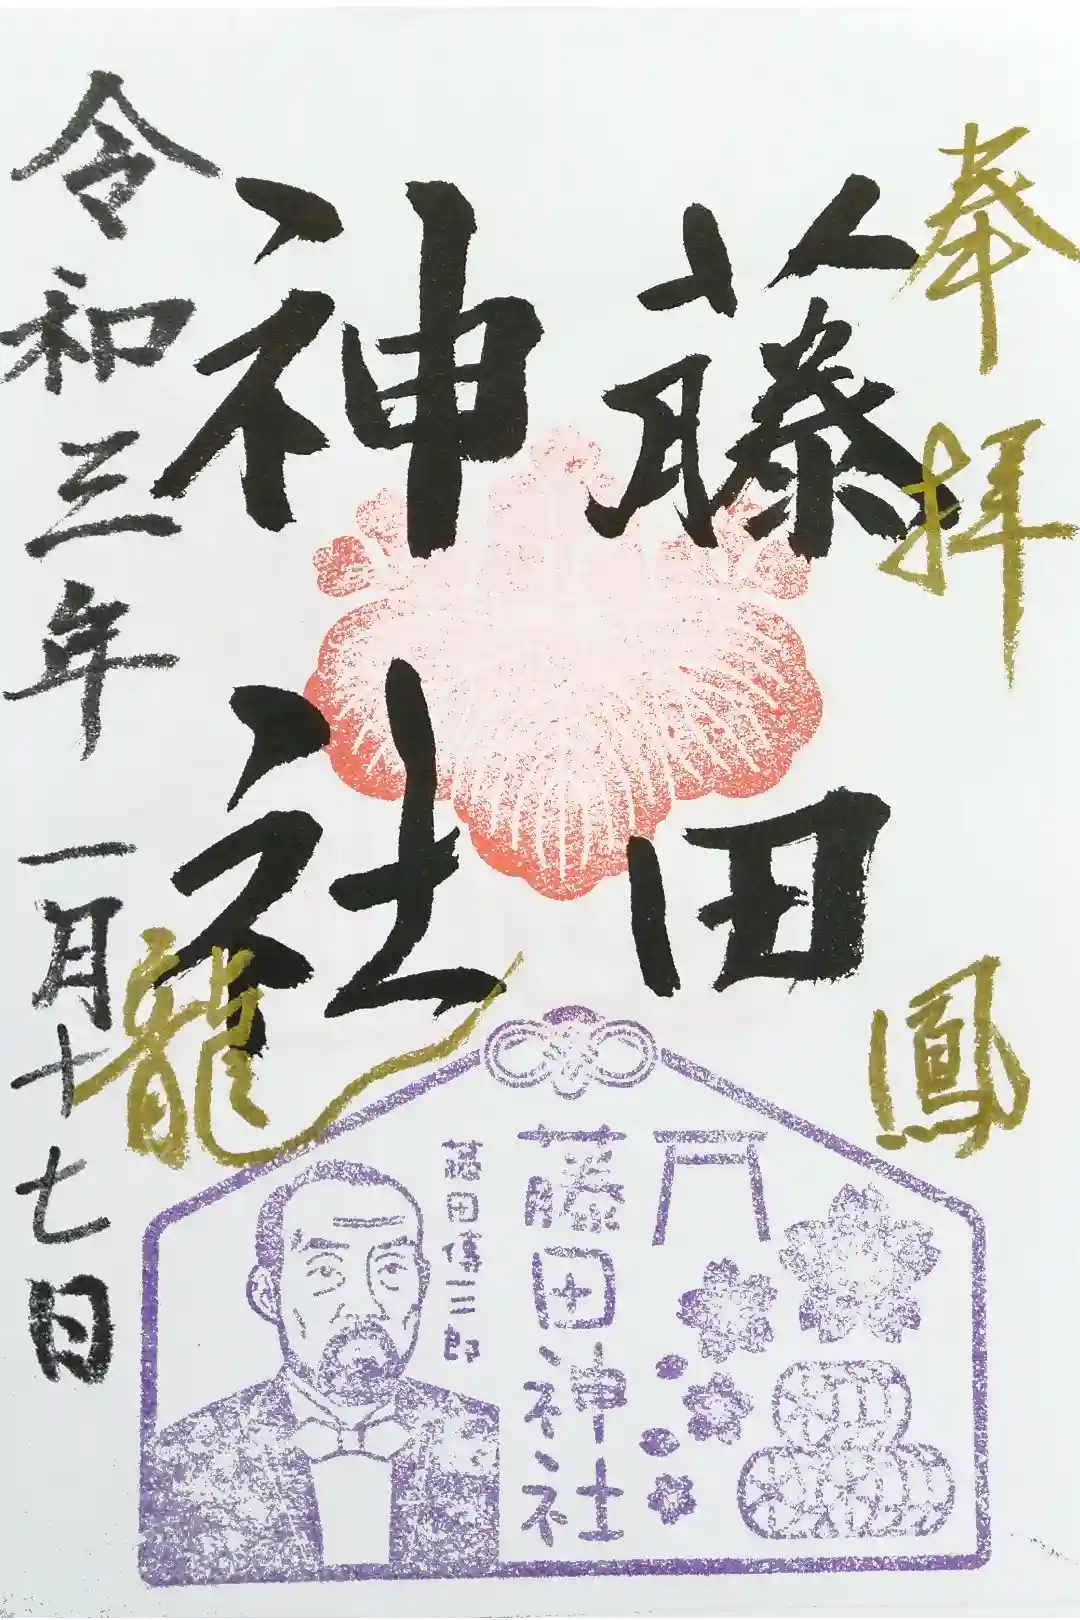 奉拝
藤田
神社
令和三年一月十七日
鳳
龍
藤田神社
藤田傳三郎